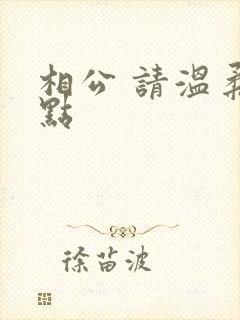 相公 請溫柔
點
徐苗波